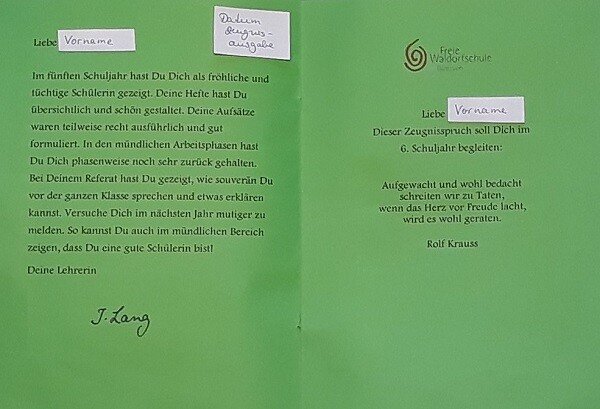 Liebe Vorname
Datum
Zeugnis-
ausgabe
Im fünften Schuljahr hast Du Dich als fröhliche und
tüchtige Schülerin gezeigt. Deine Hefte hast Du
übersichtlich und schön gestaltet. Deine Aufsätze
waren teilweise recht ausführlich und gut
formuliert. In den mündlichen Arbeitsphasen hast
Du Dich phasenweise noch sehr zurück gehalten.
Bei Deinem Referat hast Du gezeigt, wie souverän Du
vor der ganzen Klasse sprechen und etwas erklären
kannst. Versuche Dich im nächsten Jahr mutiger zu
melden. So kannst Du auch im mündlichen Bereich
zeigen, dass Du eine gute Schülerin bist!
Deine Lehrerin
J. Lang
Freie
Waldorfschule
Liebe Vorname
Dieser Zeugnisspruch soll Dich im
6. Schuljahr begleiten:
Aufgewacht und wohl bedacht
schreiten wir zu Taten,
wenn das Herz vor Freude lacht,
wird es wohl geraten.
Rolf Krauss